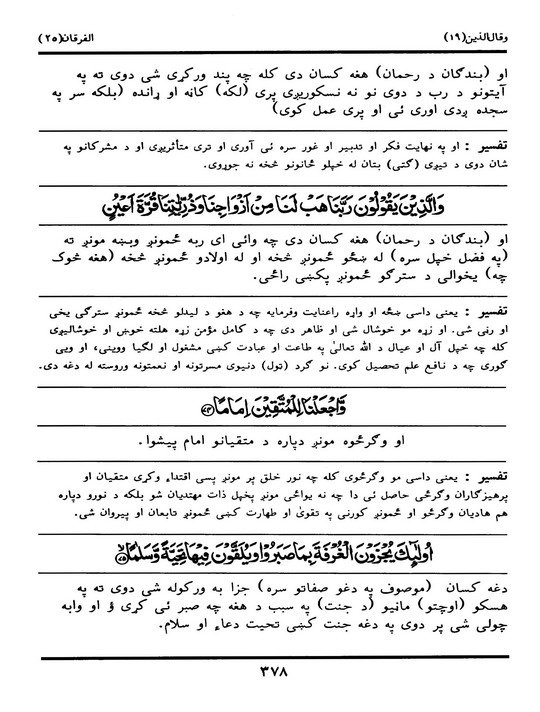 وقال‌الذین(۱۹) الفرقان(۲۵)
او (بندګان د رحمان) هغه کسان دی کله چه پند ورکړی شی دوی ته په
آیتونو د رب د دوی نو نه نسکوریږی پری (لکه) کاڼه او ړانده (بلکه سر په
سجده پدی اوری ئی او پری عمل کوی)
تفسیر : او په نهایت فکر او تدبیر او غور سره ئی آوری او تری متأثریږی او د مشرکانو په
شان دوی د تیږی (ګټی) بتان له خپلو ځانونو څخه نه جوړوی.
وَالَّذِیْنَ یَقُوْلُوْنَ رَبَّنَا هَبْ لَنَا مِنْ اَزْوَاجِنَا وَذُرِّیّٰتِنَا قُرَّةَ اَعْیُنٍ
او (بندګان د رحمان) هغه کسان دی چه وائی ای ربه ځمونږ وبښه مونږ ته
(په فضل خپل سره) له ښځو ځمونږ څخه او له اولادو ځمونږ څخه (هغه څوک
چه) یخوالی د سترګو ځمونږ پکښی راځی.
تفسیر : یعنی داسی ښځه او واړه راعنایت وفرمایه چه د هغو د لیدلو څخه ځمونږ سترګی یخی
او رڼی شی. او زړه مو خوشال شی او ظاهر دی چه د کامل مؤمن زړه هلته خوښ او خوشالیږی
کله چه خپل آل او عیال د الله تعالیٰ په طاعت او عبادت کښی مشغول او لګیا ووینی، او ویی
ګوری چه د نافع علم تحصیل کوی. نو ګرد (ټول) دنیوی مسرتونه او نعمتونه وروسته له دغه دی.
وَّاجْعَلْنَا لِلْمُتَّقِیْنَ اِمَامًا ﴿۷۴﴾
او وګرځوه مونږ دپاره د متقیانو امام پیشوا.
تفسیر : یعنی داسی مو وګرځوی کله چه نور خلق پر مونږ پسی اقتداء وکړی متقیان او
پرهیزګاران وګرځی حاصل ئی دا چه نه یوائی مونږ پخپل ذات مهتدیان شو بلکه د نورو دپاره
هم هادیان وګرځو او ځمونږ کورنی په تقویٰ او طهارت کښی ځمونږ تابعان او پیروان شی.
اُولٰٓئِكَ یُجْزَوْنَ الْغُرْفَةَ بِمَا صَبَرُوْا وَیُلَقَّوْنَ فِیْهَا تَحِیَّةً وَّسَلٰمًا ﴿۷۵﴾
دغه کسان (موصوف په دغو صفاتو سره) جزا به ورکوله شی دوی ته په
هسکو (اوچتو) مانیو (د جنت) په سبب د هغه چه صبر ئی کړی ؤ او وابه
چولی شی پر دوی په دغه جنت کښی تحیت دعاء او سلام.
۳۷۸